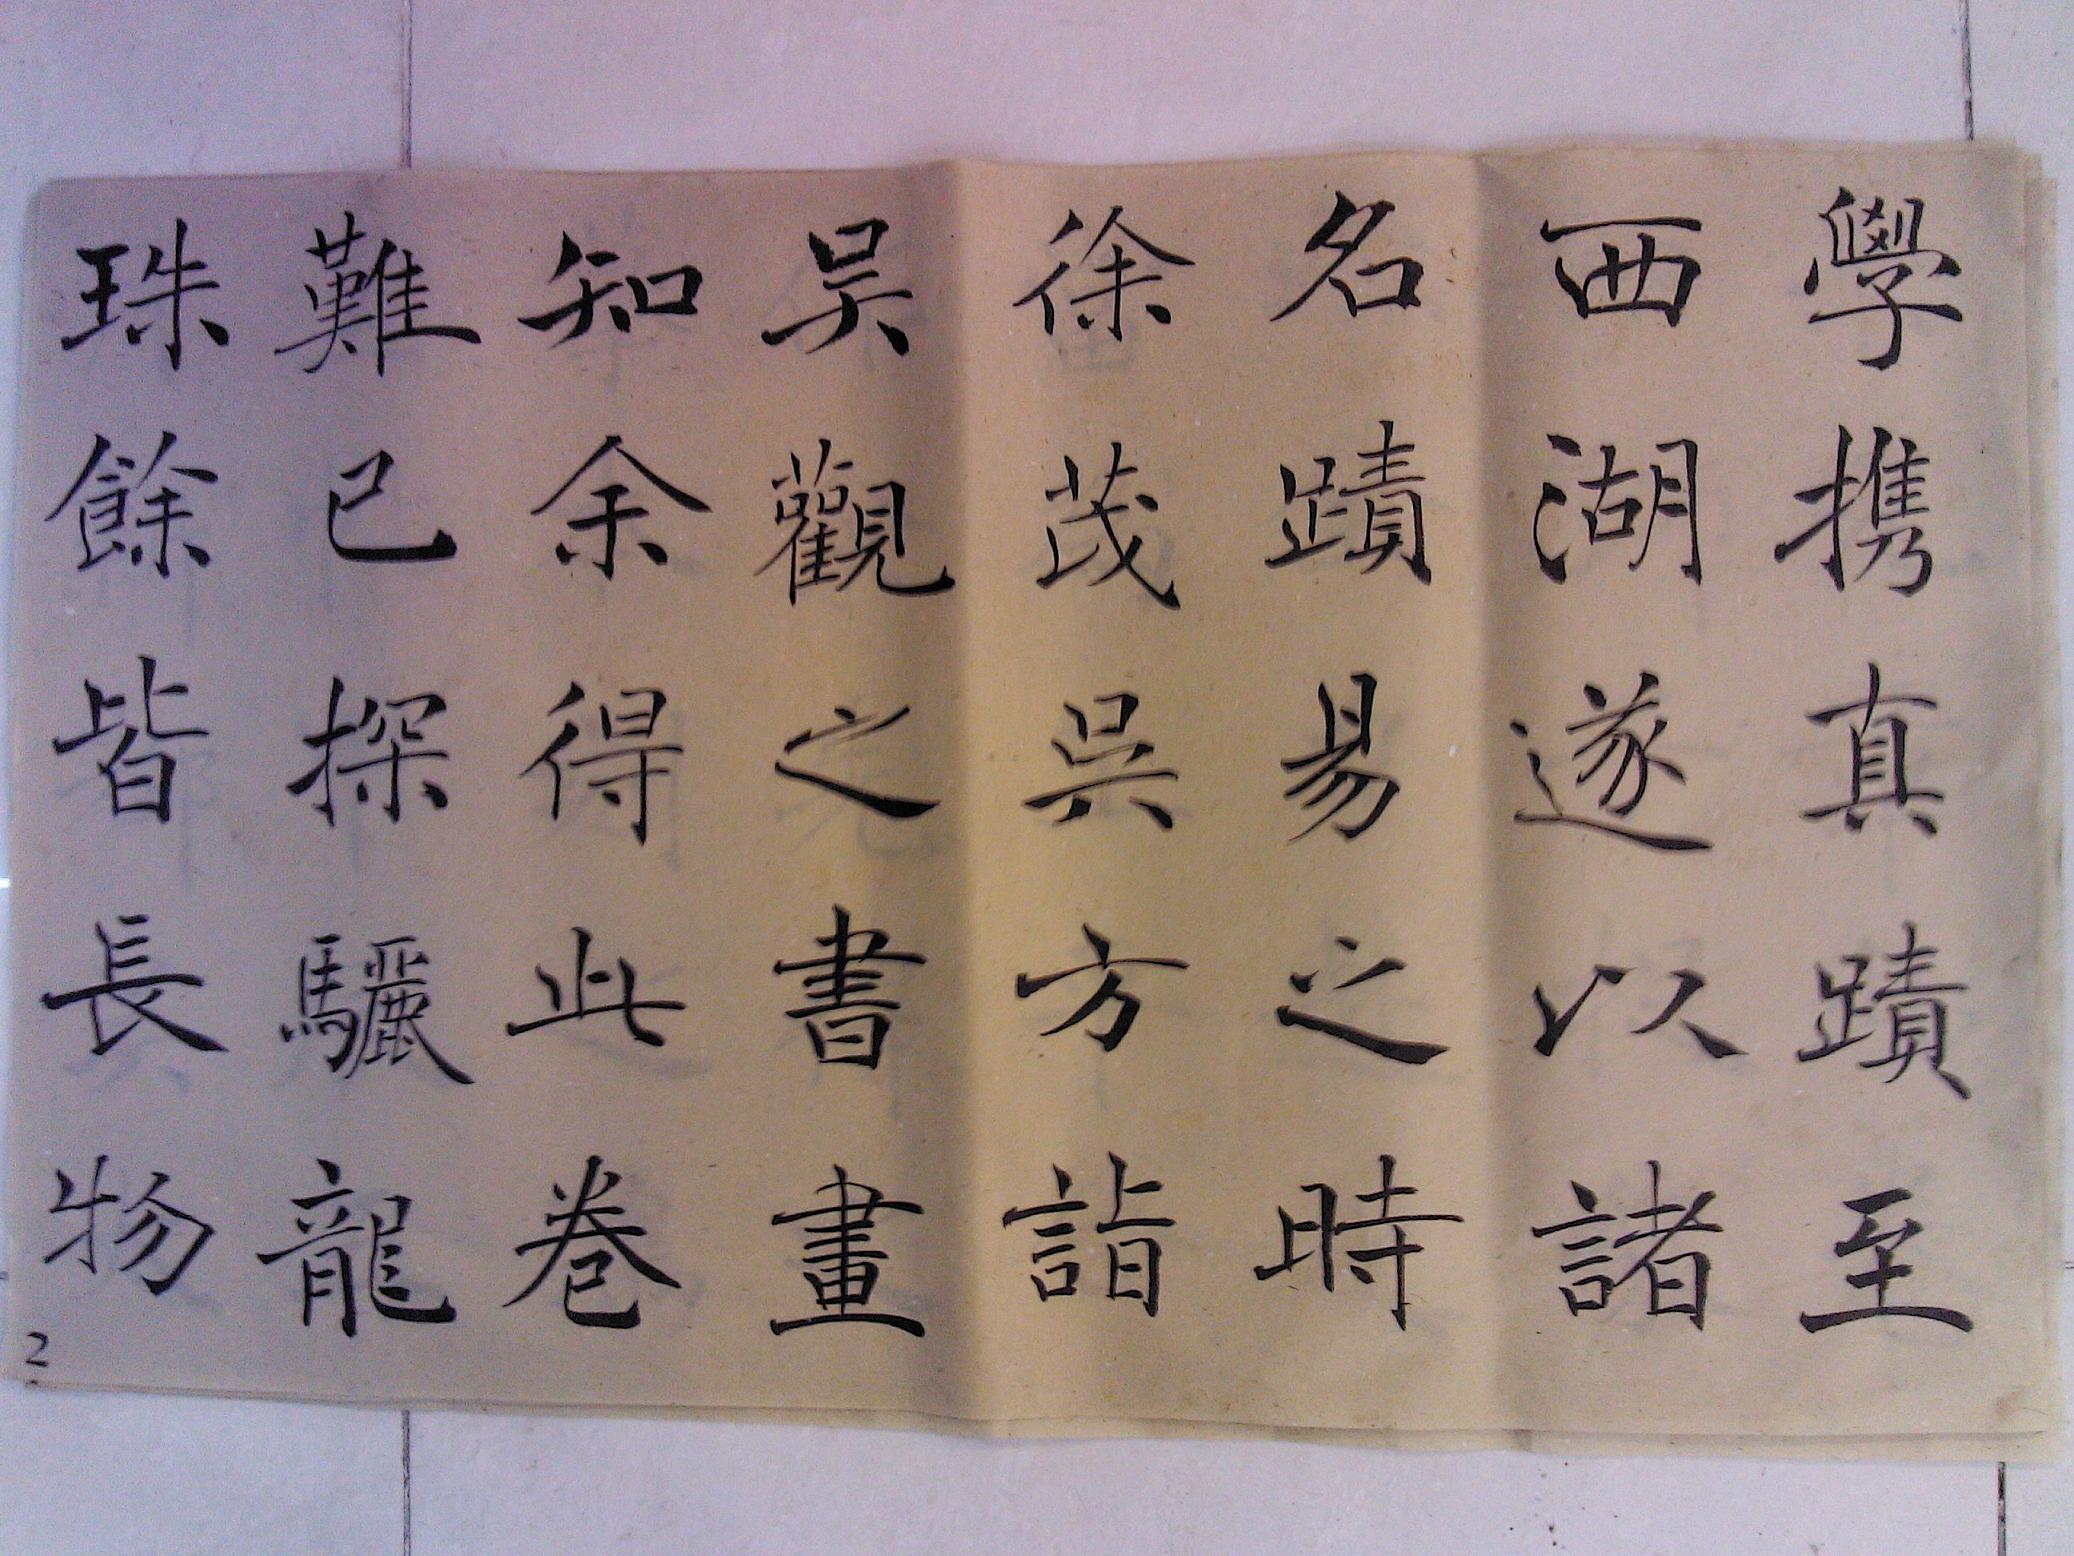 學携真蹟至
西湖遂以諸
名蹟易之時
徐茂吳方詣
吴觀之書畫
知余得此卷
難已探驪龍
珠餘皆長物
2